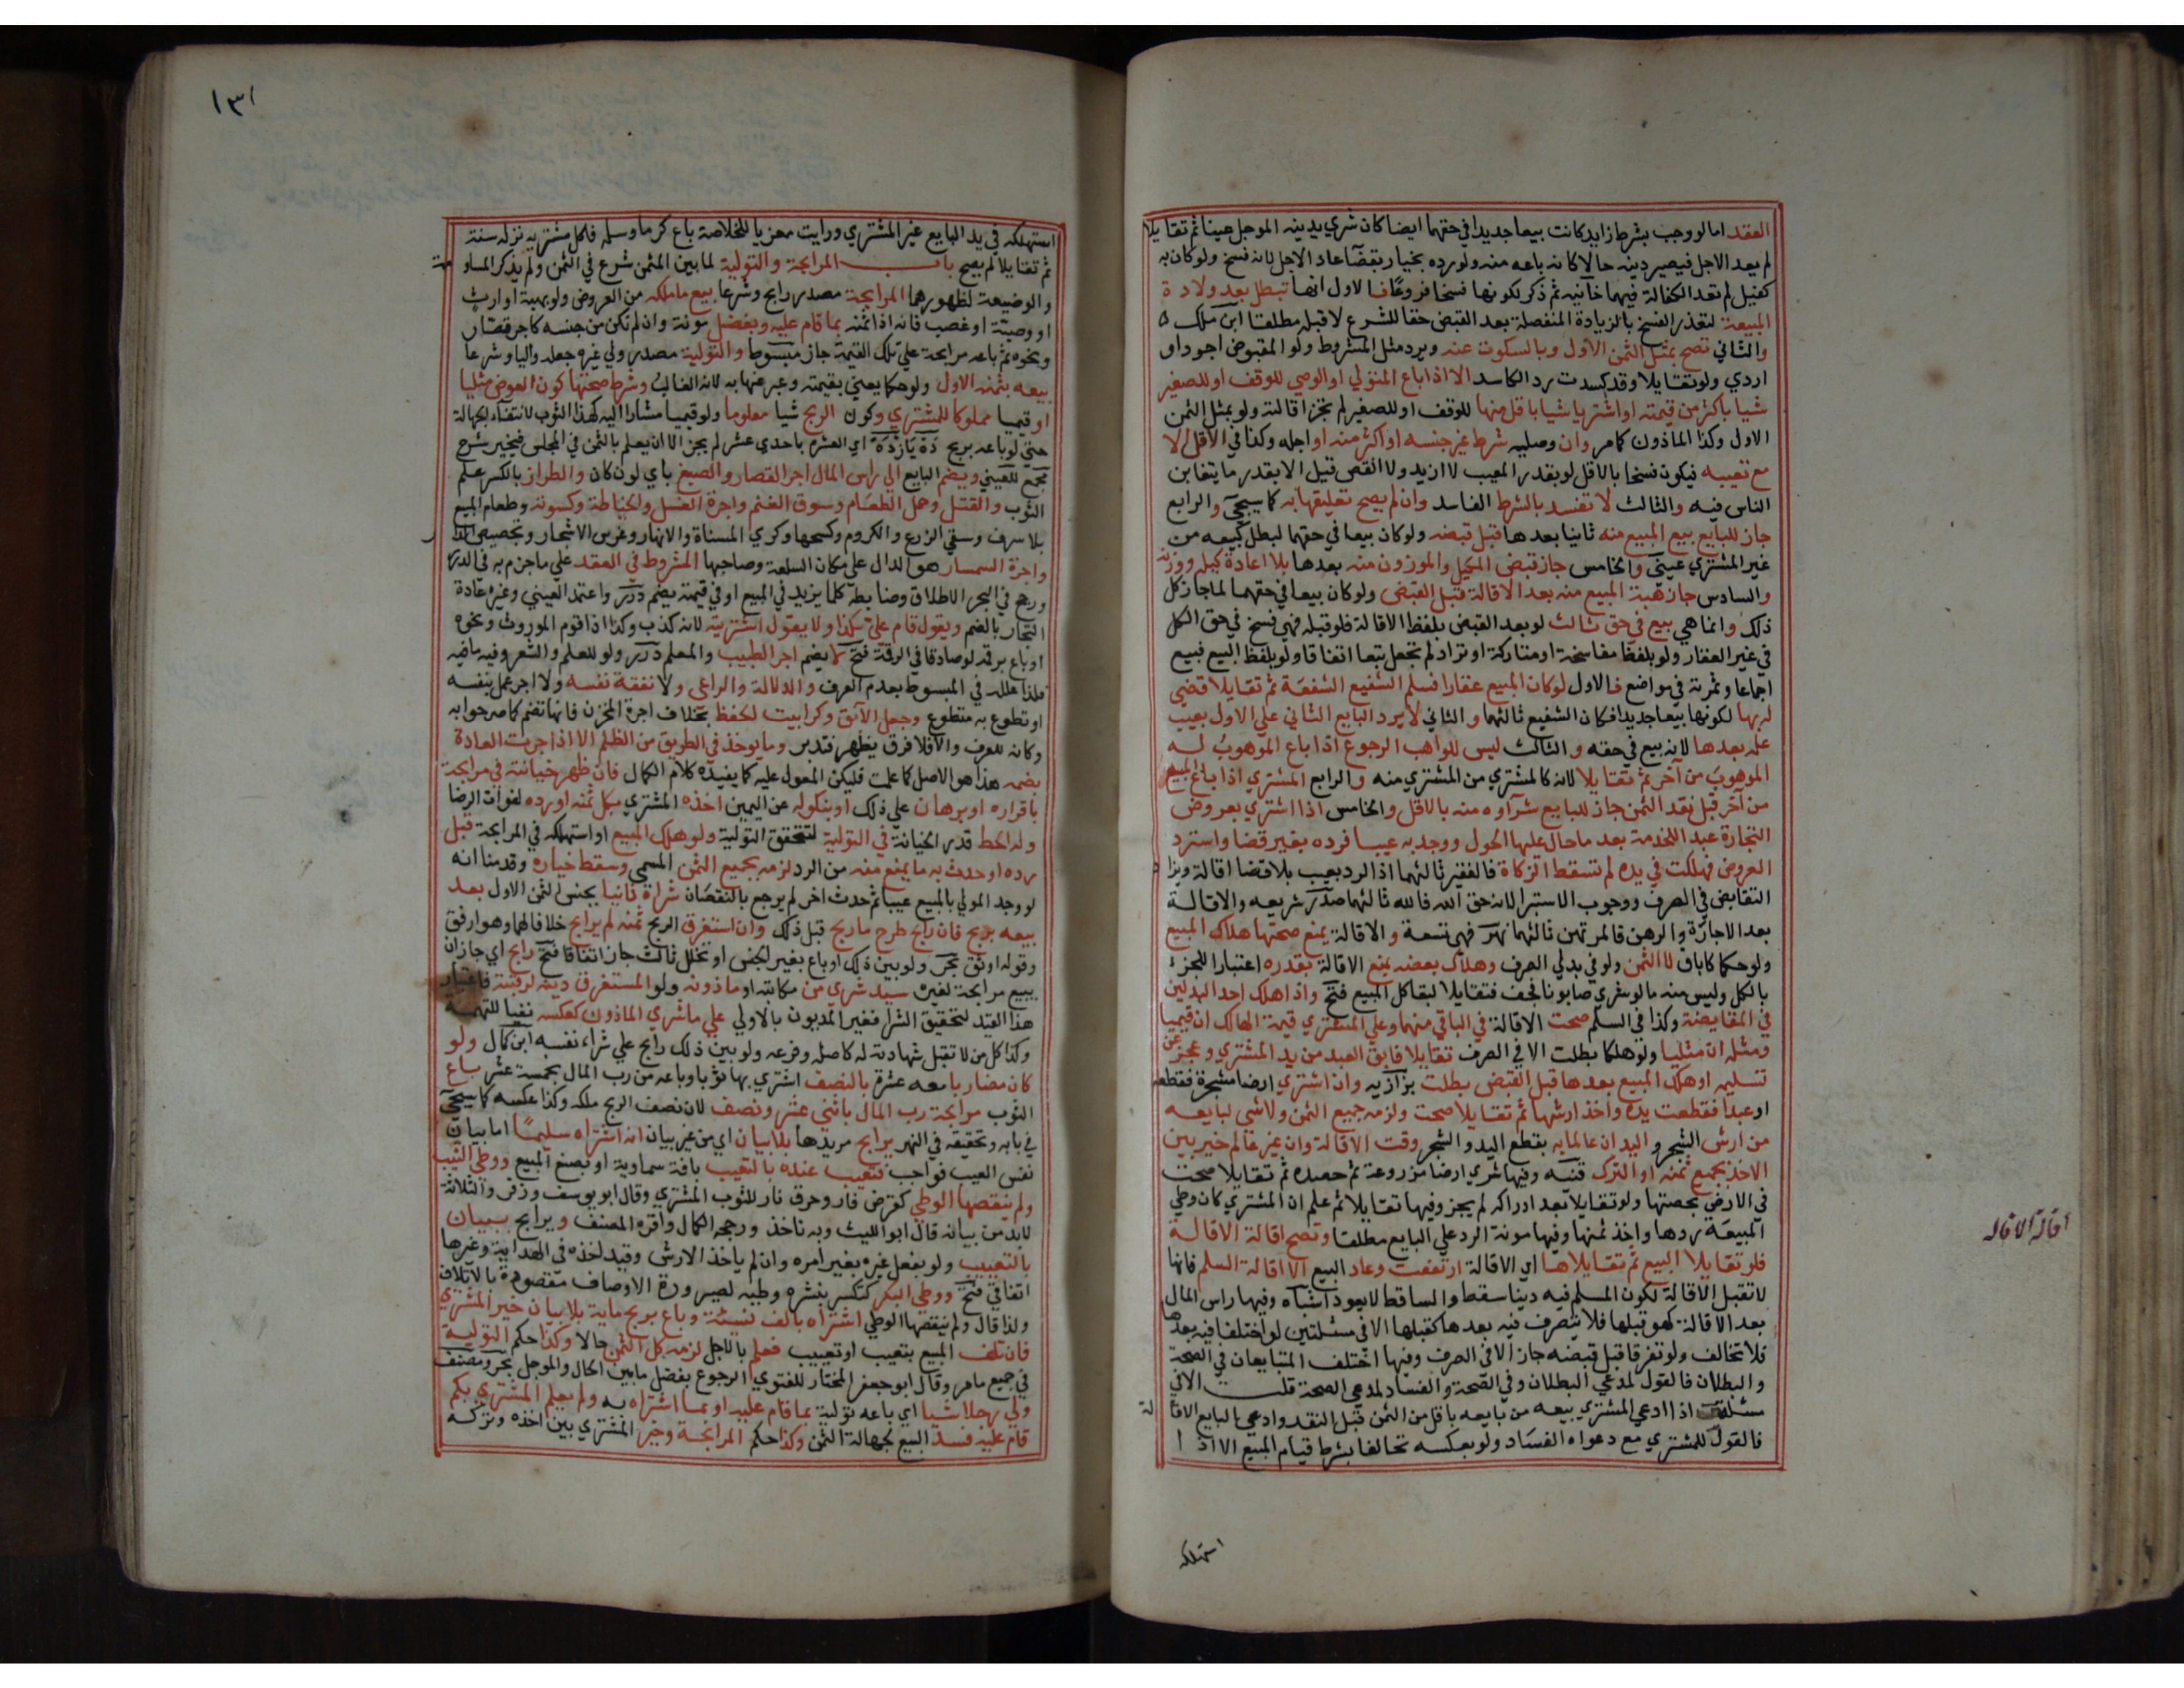 العقد اما لو وجب بشرط زايد كانت بيعا جديدا في حقهما ايضا كان شري بدينه الموجل عينا ثم تقايلا
لم يعد الاجل فيصير دينه حالا كانه باعه منه ولو رده بخيار بقضآ عاد الاجل لانه فسخ ولو كان به
كفيل لم تعد الكفالة فيهما خانيه ثم ذكر لكونها فسخا فروعا فالاول انها تبطل بعد ولادة
المبيعة لتعذر الفسخ بالزيادة المنفصلة بعد القبض حقا للشرع لا قبله مطلقا ابن ملك
والثاني تصح بمثل الثمن الاول وبالسكوت عنه ويرد مثل المشروط ولو المقبوض اجود او
اردي ولو تقايلا وقد كسدت رد الكاسد الا اذا باع المتولي او الوصي للوقف او للصغير
شيا باكثر من قيمته او اشتريا شيا باقل منها للوقف او للصغير لم تجز اقالته ولو بمثل الثمن
الاول وكذا الماذون كما مر وان وصليه شرط غير جنسه او اكثر منه او اجله وكذا في الاقل الا
مع تعيبه فيكون فسخا بالاقل لو بقدر المعيب لا ازيد ولا انقص قيل الا بقدر ما يتغابن
الناس فيه والثالث لا تفسد بالشرط الفاسد وان لم يصح تعليقها به كما سيجي والرابع
جاز للبايع بيع المبيع منه ثانيا بعدها قبل قبضه ولو كان بيعا في حقهما لبطل كبيعه من
غير المشتري عيني والخامس جاز قبض المكيل والموزون منه بعدها بلا اعادة كيله ووزنه
والسادس جاز هبة المبيع منه بعد الاقالة قبل القبض ولو كان بيعا في حقهما لما جاز كل
ذلك وانما هي بيع في حق ثالث لو بعد القبض بلفظ الاقالة فلو قبله فهي فسخ في حق الكل
في غير العقار ولو بلفظ مفاسخة او متاركة او تراد لم تجعل بيعا اتفاقا ولو بلفظ البيع فبيع
اجماعا وثمرته في مواضع فالاول لو كان المبيع عقارا فسلم الشفيع الشفعة ثم تقايلا قضي
له بها لكونها بيعا جديدا فكان الشفيع ثالثهما والثاني لا يرد البايع الثاني علي الاول بعيب
علمه بعدها لانه بيع في حقه والثالث ليس للواهب الرجوع اذا باع الموهوب له
الموهوب من آخر ثم تقايلا لانه كالمشتري من المشتري منه والرابع المشتري اذا باع المبيع
من آخر قبل نقد الثمن جاز للبايع شرآوه منه بالاقل والخامس اذا اشتري بعروض
التجارة عبدا للخدمة بعد ما حال عليها الحول ووجد به عيبا فرده بغير قضا واسترد
العروض فهلكت في يده لم تسقط الزكاة فالفقير ثالثهما اذ الرد بعيب بلا قضا اقالة ويزاد
التقابض في الصرف ووجوب الاستبرا لانه حق الله فالله ثالثهما صدر شريعه والاقالة
بعد الاجارة والرهن فالمرتهن ثالثهما نهر فهي تسعة والاقالة يمنع صحتها هلاك المبيع
ولو حكما كاباق لا الثمن ولو في بدلي الصرف وهلاك بعضه يمنع الاقالة بقدره اعتبارا للجزء
بالكل وليس منه ما لو شري صابونا فجف فتقايلا لبقا كل المبيع فتح واذا هلك احد البدلين
في المقايضة وكذا في السلم صحت الاقالة في الباقي منهما وعلي المشتري قيمة الهالك ان قيميا
ومثله ان مثليا ولو هلكا بطلت الا في الصرف تقايلا فابق العبد من يد المشتري وعجز عن
تسليمه او هلك المبيع بعدها قبل القبض بطلت بزازيه وان اشتري ارضا مشجرة فقطعه
او عبدا فقطعت يده واخذ ارشها ثم تقايلا صحت ولزمه جميع الثمن ولا شي لبايعه
من ارش الشجر واليد ان عالما به بقطع اليد والشجر وقت الاقالة وان غير عالم خير بين
الاخذ بجميع ثمنه او الترك قنيه وفيها شري ارضا مزروعة ثم حصده ثم تقايلا صحت
في الارض بحصتها ولو تقايلا بعد ادراكه لم يجز وفيها تقايلا ثم علم ان المشتري كان وطي
المبيعة ردها واخذ ثمنها وفيها مونة الرد علي البايع مطلقا وتصح اقالة الاقالة
فلو تقايلا البيع ثم تقايلاها اي الاقالة ارتفعت وعاد البيع الا اقالة السلم فانها
لا تقبل الاقالة لكون المسلم فيه دينا سقط والساقط لا يعود اشباه وفيها راس المال
بعد الاقالة كهو قبلها فلا يتصرف فيه بعدها كقبلها الا في مسئلتين لو اختلفا فيه بعدها
فلا تخالف ولو تفرقا قبل قبضه جاز الا في الصرف وفيها اختلف المتبايعان في الصحة
والبطلان فالقول لمدعي البطلان وفي الصحة والفساد لمدعي الصحة قلت الا في
مسئلة اذا ادعي المشتري بيعه من بايعه باقل من الثمن قبل النقد وادعي البايع الاقالة
فالقول للمشتري مع دعواه الفساد ولو بعكسه تحالفا بشرط قيام المبيع الا اذا
استهلكه
اقالة الاقاله
١٣١
استهلكه في يد البايع غير المشتري ورايت معزيا للخلاصة باع كرما وسلمه فاكل مشتريه نزله سنة
ثم تقايلا لم يصح باب المرابحة والتولية لما بين المثمن شرع في الثمن ولم يذكر المساومة
والوضيعة لظهورهما المرابحة مصدر رابح وشرعا بيع ما ملكه من العروض ولو بهبة او ارث
او وصية او غصب فانه اذا ثمنه بما قام عليه وبفضل مونة وان لم تكن من جنسه كاجر قصار
ونحوه ثم باعه مرابحة علي تلك القيمة جاز مبسوط والتولية مصدر ولي غيره جعله واليا وشرعا
بيعه بثمنه الاول ولو حكما يعني بقيمته وعبر عنها به لانه الغالب وشرط صحتها كون العوض مثليا
او قيميا مملوكا للمشتري وكون الربح شيا معلوما ولو قيميا مشارا اليه كهذا الثوب لانتفاء الجهالة
حتي لو باعه بربح ده يازده اي العشرة باحدي عشر لم يجز الا ان يعلم بالثمن في المجلس فيخير شرح
مجمع للعيني ويضم البايع الي راس المال اجر القصار والصبغ باي لون كان والطراز بالكسر علم
الثوب والفتل وحمل الطعام وسوق الغنم واجرة الغسل والخياطة وكسوته وطعام المبيع
بلا سرف وسقي الزرع والكروم وكسحها وكري المسناة والانهار وغرس الاشجار وتجصيص الدار
واجرة السمسار هو الدال علي مكان السلعة وصاحبها المشروط في العقد علي ما جزم به في الدرر
ورجح في البحر الاطلاق وضابطه كلما يزيد في المبيع او في قيمته يضم درر واعتمد العيني وغيره عادة
التجار بالضم ويقول قام علي بكذا ولا يقول اشتريته لانه كذب وكذا اذا قوم الموروث ونحوه
او باع برقمه لو صادقا في الرقم فتح لا يضم اجر الطبيب والمعلم درر ولو للعلم والشعر وفيه ما فيه
فلذا علله في المبسوط بعدم العرف والدلالة والراعي ولا نفقة نفسه ولا اجر عمل بنفسه
او تطوع به متطوع وجعل الآبق وكرا بيت لحفظ بخلاف اجرة المخزن فانها تضم كما صرحوا به
وكانه للعرف والا فلا فرق يظهر فتدبر وما يوخذ في الطريق من الظلم الا اذا جرت العادة
بضمه هذا هو الاصل كما علمت فليكن المعول عليه كما يفيده كلام الكمال فان ظهر خيانته في مرابحة
باقراره او برهان علي ذلك او بنكوله عن اليمين اخذه المشتري بكل ثمنه او رده لفوات الرضا
وله الحط قدر الخيانة في التولية لتتحقق التولية ولو هلك المبيع او استهلكه في المرابحة قبل
رده او حدث به ما يمنع منه من الرد لزمه بجميع الثمن المسمي وسقط خياره وقدمنا انه
لو وجد المولي بالمبيع عيبا ثم حدث اخر لم يرجع بالنقصان شراه ثانيا بجنس الثمن الاول بعد
بيعه بربح فان رابح طرح ما ربح قبل ذلك وان استغرق الربح ثمنه لم يرابح خلافا لهما وهو ارفق
وقوله اوثق بحر ولو بين ذلك او باع بغير الجنس او تخلل ثالث جاز اتفاقا فتح رابح اي جاز ان
يبيع مرابحة لغيره سيد شري من مكاتبه او ماذونه ولو المستغرق دينه لرقبته فاعتبار
هذا القيد لتحقيق الشرا فغير المديون بالاولي علي ما شري الماذون كعكسه نفيا للتهمة
وكذا كل من لا تقبل شهادته له كاصله وفرعه ولو بين ذلك رابح علي شراء نفسه ابن كمال ولو
كان مضاربا معه عشرة بالنصف اشتري بها ثوبا وباعه من رب المال بخمسة عشر باع
الثوب مرابحة رب المال باثني عشر ونصف لان نصف الربح ملكه وكذا عكسه كما سيجي
في بابه وتحقيقه في النهر يرابح مريدها بلا بيان اي من غير بيان انه اشتراه سليما اما بيان
نفس العيب فواجب فتعيب عنده بالتعيب بافة سماوية او بصنع المبيع ووطي الثيب
ولم ينقصها الوطي كقرض فار وحرق نار للثوب المشتري وقال ابو يوسف وزفر والثلاثة
لابد من بيانه قال ابو الليث وبه ناخذ ورجحه الكمال واقره المصنف ويرابح ببيان
بالتعييب ولو بفعل غيره بغير امره وان لم ياخذ الارش وقيد اخذه في الهداية وغيرها
اتفاقي فتح ووطي البكر كتكسر بنشره وطيه لصيرورة الاوصاف مقصودة بالاتلاف
ولذا قال ولم ينقصها الوطي اشتراه بالف نسيئة وباع بربح ماية بلا بيان خير المشتري
فان تلف المبيع بتعيب او تعييب فعلم بالاجل لزمه كل الثمن حالا وكذا حكم التولية
في جميع ما مر وقال ابو جعفر المختار للفتوي الرجوع بفضل ما بين الحال والموجل بحر ومصنف
ولي رجلا شيا اي باعه تولية بما قام عليه او بما اشتراه به ولم يعلم المشتري بكم
قام عليه فسد البيع لجهالة الثمن وكذا حكم المرابحة وخير المشتري بين اخذه وتركه